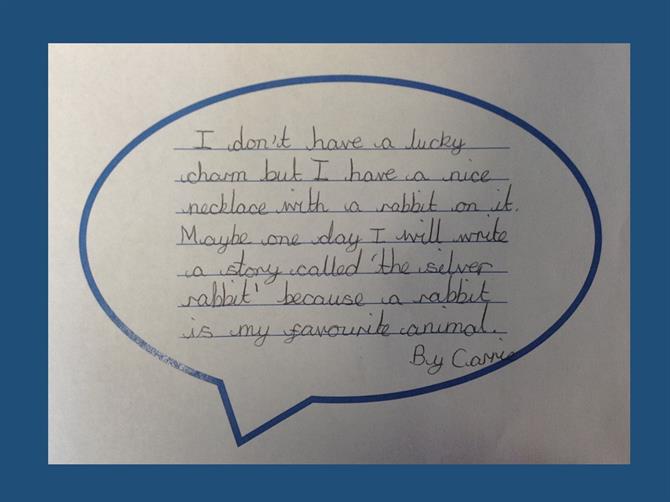 I don't have a lucky
charm but I have a nice
necklace with a rabbit on it.
Maybe one day I will write
a story called 'the silver
rabbit' because a rabbit
is my favourite animal.
By Carrie